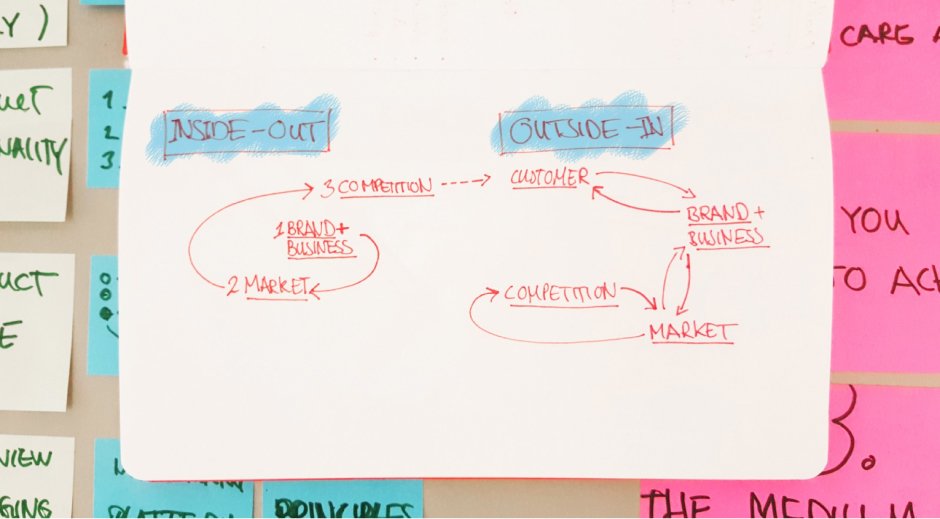 INSIDE-OUT
3 COMPETITION
1 BRAND+
BUSINESS
2 MARKET
OUTSIDE-IN
CUSTOMER
BRAND+
BUSINESS
COMPETITION
MARKET
Y)
NALITY
1.
2
3.
UCT
E
VIEW
GING
PRINCIPLES
CARE A
YOU
TO ACH
3.
THE MEDIUM